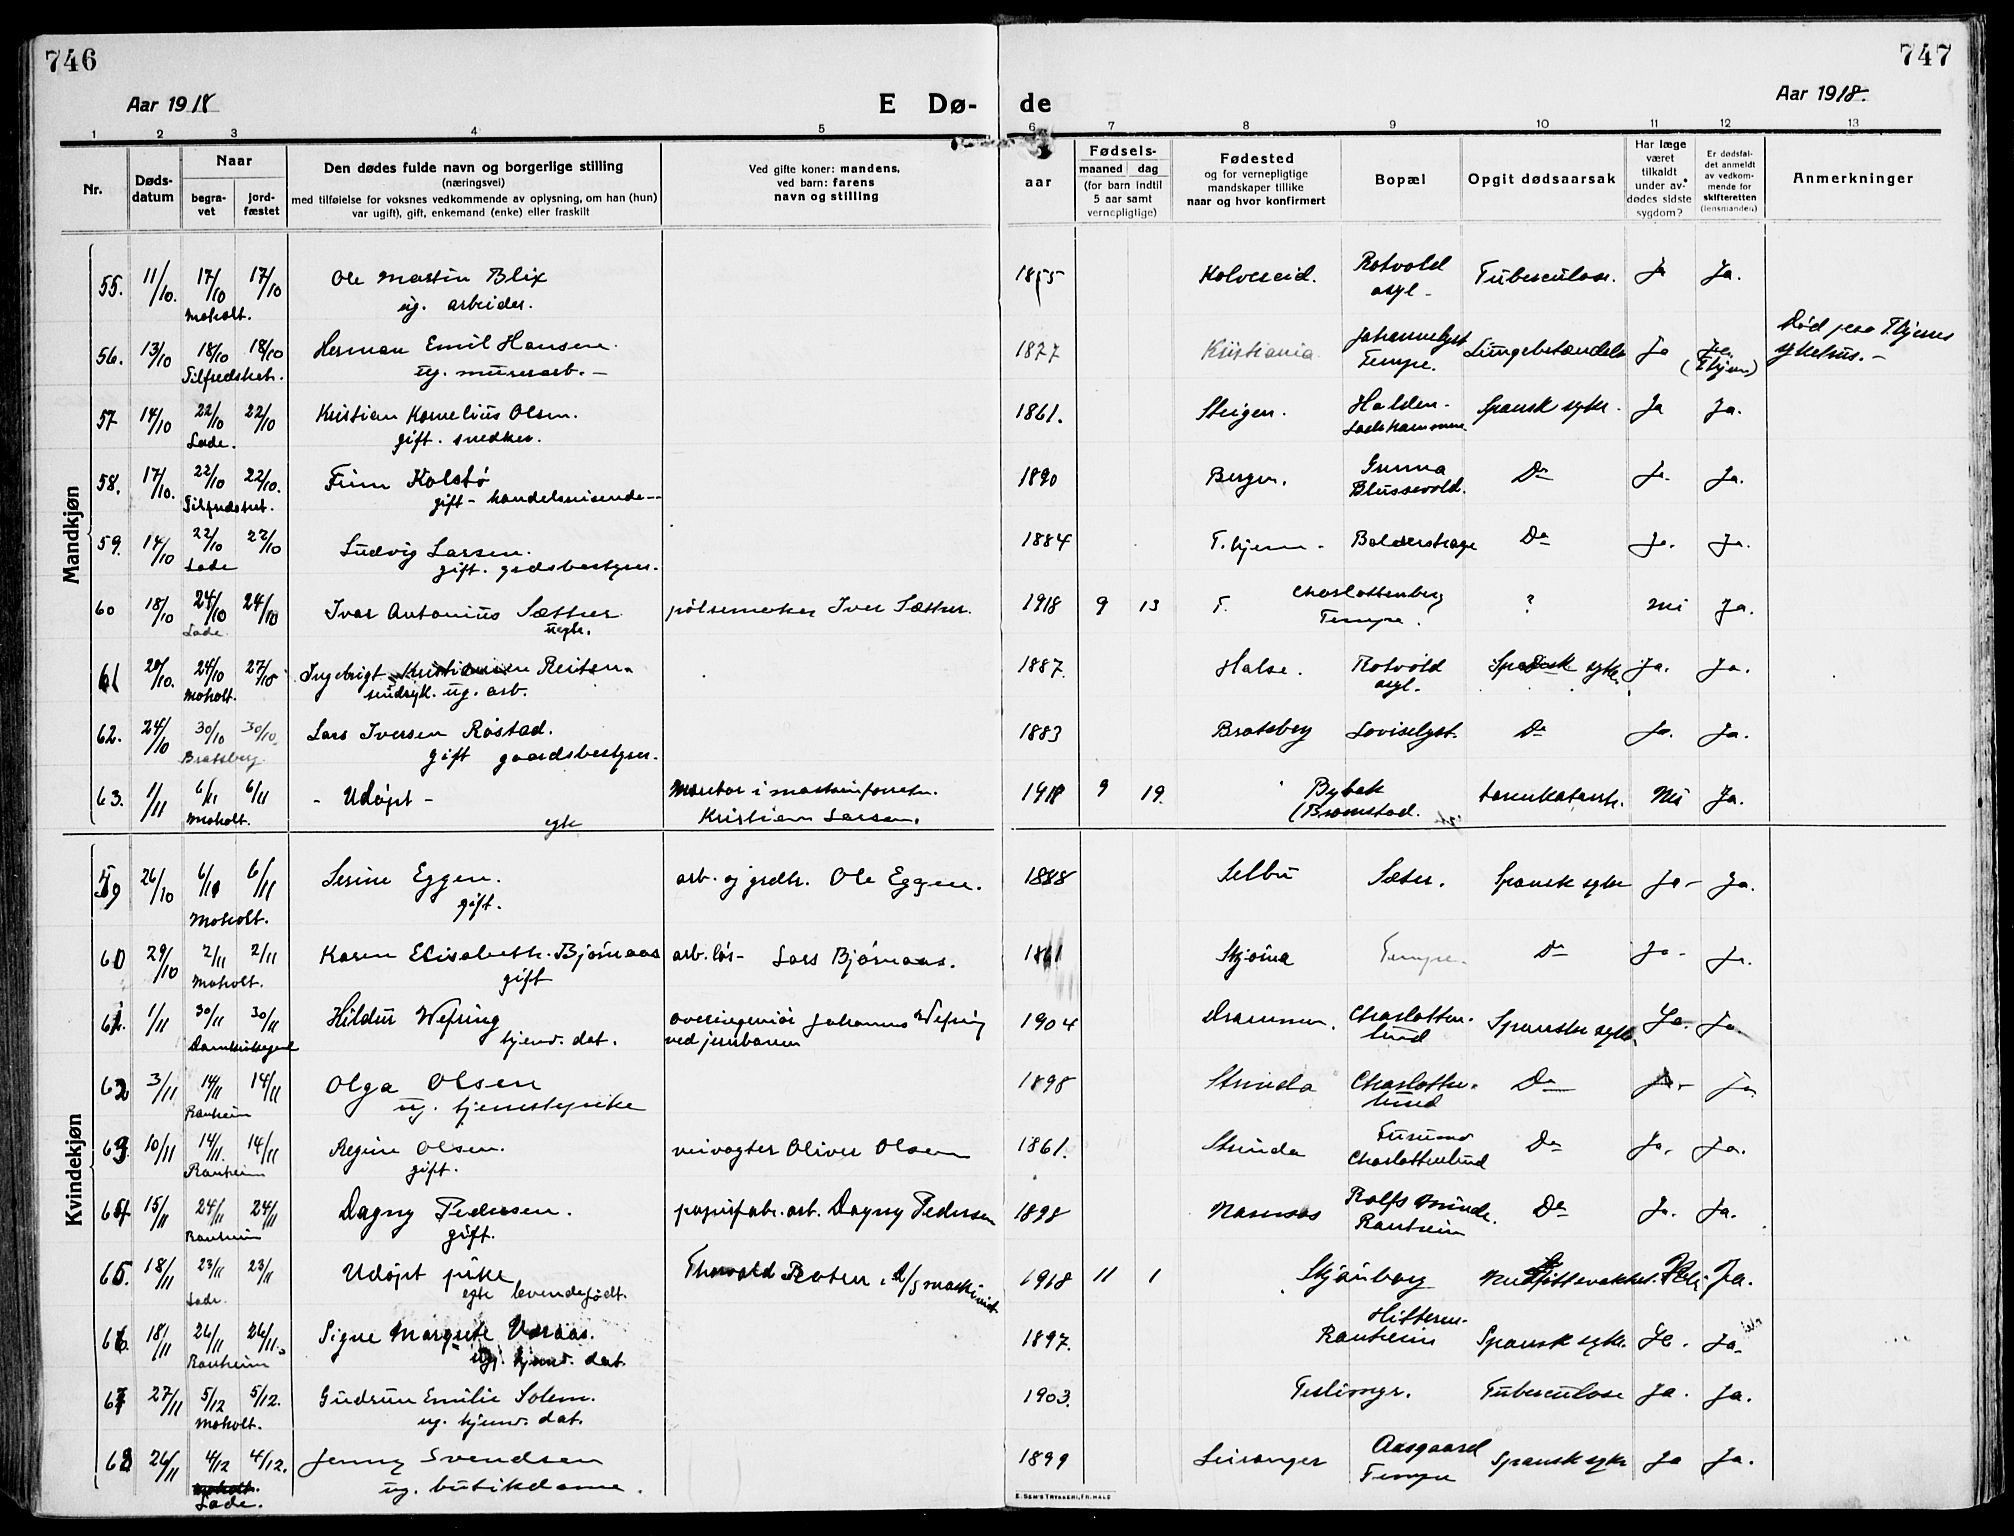 746
747
Aar 1918
E Dø-
de
Aar 1918.
1 2 3 4 5 6 7 8 9 10 11 12 13
Nr.
Døds-
datum
Naar
begra-
vet
jord-
fæstet
Den dødes fulde navn og borgerlige stilling
(næringsvei)
med tilføielse for voksnes vedkommende av oplysning, om han (hun)
var ugift), gift, enkemand (enke) eller fraskilt
Ved gifte koner: mandens,
ved barn: farens
navn og stilling
aar
Fødsels-
maaned dag
(for barn indtil
5 aar samt
vernepligtige)
Fødested
og for vernepligtige
mandskaper tillike
naar og hvor konfirmert
Bopæl
Opgit dødsaarsak
Har læge
været
tilkaldt
under av-
dødes sidste
sygdom?
Er dødsfal-
det anmeldt
av vedkom-
mende for
skifteretten
(lensmanden)
Anmerkninger
Mandkjøn
55. 11/10. 17/10 17/10 Ole Martin Blix 1855 Kolvereid. Rotvold Tuberculose. Ja Ja.
Moholt. ug. arbeider. asyl-
56. 13/10 18/10 18/10 Herman Emil Hansen. 1877 Kristiania Johannelyst Lungebetændelse Ja Ja. Død paa Thjems
Tilfredshet. ug. murerarb. - Tempe. (Thjem) sykehus. -
57 14/10 22/10 22/10 Kristian Kornelius Olsen. 1861. Steigen. Halden- Spansk syke. Ja Ja.
Lade. gift. snedker. Ladehammeren
58. 17/10. 22/10 22/10. Finn Kolstø 1890 Bergen. Gunna Do Ja. Ja.
Tilfredshet. gift - handelsreisende - Blussevold.
59. 14/10 22/10 22/10 Ludvig Larsen. 1884 T.hjem - Baldershage Do Ja. Ja.
Lade gift. grdsbestyrer.
60 18/10 24/10 24/10 Ivar Antonius Sæther pølsemaker Iver Sæther. 1918 9 13 T. Charlottenberg ? Nei Ja.
Lade. uegte. Tempe.
61 20/10. 24/10 27/10 Ingebrigt Kristiansen Reiten 1887. Halse. Rotvold Spansk syke. Ja. Ja.
Moholt. sindsyk. ug. arb. asyl.
62. 24/10 30/10 30/10. Lars Iversen Røstad. 1883 Bratsberg Loviselyst. Do Ja. Ja.
Bratsberg. gift gaardsbestyrer.
63. 1/11 6/11 6/11 - Udøpt - Montør i maskinforretn. 1918 9 19. Bybæk Nei Ja.
Moholt. egte Kristian Larsen. (Bromstad.
Kvindekjøn
59 26/10 6/11 6/11 Serine Eggen. arb. og grdbr. Ole Eggen. 1888 Selbu Sæter. Spansk syke Ja - Ja.
Moholt. gift.
60 29/10 2/11 2/11 Karen Elisabeth Bjørnaas arb.før- Lars Bjørnaas. 1861 Skjørna Tempe. Do Ja - Ja.
Moholt. gift
61. 1/11 30/11 30/11 Hildur Wefring overingeniør Johannes Wefring 1904 Drammen. Charlotten- Spanske syke. Ja. Ja.
Domkirkegaard hjemv. dat. ved jernbanen lund
62 3/11 14/11 14/11 Olga Olsen 1898 Strinda Charlotten- Do Ja- Ja
Ranheim ug. tjenestepike lund
63. 10/11 14/11. 14/11 Regine Olsen. veivogter Oliver Olsen 1861. Strinda Furumo Do Ja. Ja.
Ranheim gift. Charlottenlund
64 15/11 24/11 24/11 Dagny Pedersen. papirfabr.arb. Dagny Pedersen 1898 Namsos Rolfs Minde. Do Ja. Ja.
Ranheim gift. Ranheim
65. 18/11 23/11 23/11 Udøpt pike Thorvald Roten, maskinist. 1918 11 1 Skjønborg Medfødt svakhet. Ja.
Lade. egte levendefødt.
66. 18/11 26/11 26/11. Signe Margrete Varaas. 1897. Hitteren- Spansk syke. Ja. Ja.
Ranheim ug. hjemv. dat. Ranheim
67 27/11 5/12 5/12. Gudrun Emilie Solem. 1903. Teslimyr. Tuberculose Ja. Ja.
Moholt. ug. hjemv. dat.
68 26/11 4/12 4/12. Jenny Svendsen 1899 Leiranger Aasgaard Spansk syke Ja Ja.
Moholt. ug. butikdame. Tempe
Lade.
E. SEM'S TRYKKERI, FR.HALD